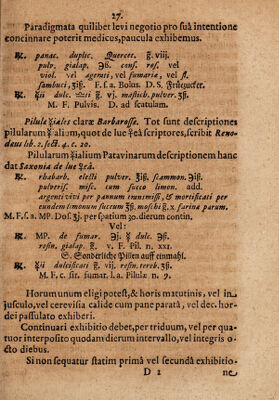 27.
Paradigmata quilibet levi negotio pro suâ intentione
concinnare poterit medicus, paucula exhibemus.
℞. panac. duplic. Quercet. ℥. viij.
pulv. gialap. ℈ß. cons. ros. vel
viol. vel agerati, vel fumariæ, vel fl.
sambuci, ʒiß. F. s. a. Bolus. D. S. Früegucker.
dulc. g. vj. mastich. pulver. ʒß.
M. F. Pulvis. D. ad scatulam.
Pilulæ claræ Barbarossæ. Tot sunt descriptiones
pilularum ialium, quot de lue eâ scriptores, scribit Reno-
daus lib. 2. sect. 4. c. 20.
Pilularum ialium Patavinarum descriptionem hanc
dat Saxonia de lue eâ.
℞. rhabarb. electi pulver. ʒiß. scammon. ʒiß.
pulveris. misc. cum succo limon. add.
argenti vivi per pannum trans & mortificati per
eundem limonum succum farina parum.
M. F. s. a. MP. Dos. ʒj. per spatium 20. dierum contin.
Vel:
℞. MP. de fumar. ℈j. dulc. ℈ß.
resin. gialap. g. v. F. Pil. n. xxi.
S. Sonderliche Pillen auff einmahl.
℞. dulcificati g. vij. resin. tereb. ʒß.
M. F. c. sir. fumar. l. a. Pilulæ n. 9.
Horum unum eligi potest, & horis matutinis, vel in
jusculo, vel cerevisia calide cum pane paratâ, vel dec. hor-
dei passulato exhiberi.
Continuari exhibitio debet, per triduum, vel per qua-
tuor interposito quodam dierum intervallo, vel integris o-
cto diebus.
Si non sequatur statim primâ vel secundâ exhibitio-
D 2 ne